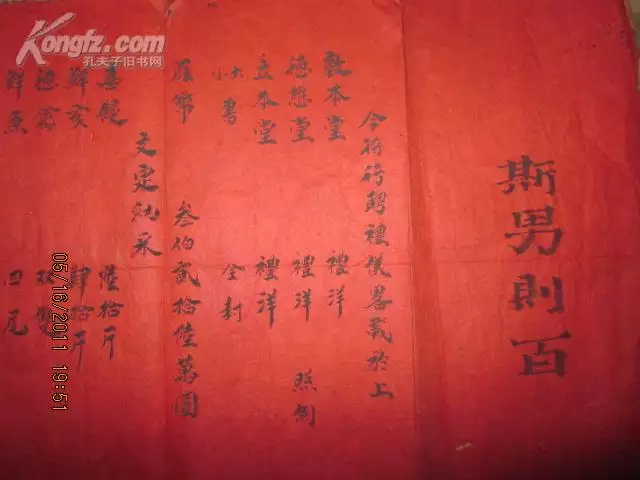 Kongfz.com
孔夫子旧书网
斯男則百
今將行聘禮儀畧載於上
敦本堂 禮洋
德懋堂 禮洋 照例
立本堂 禮洋
大小書 全封
叁佰貳拾陸萬圓
文定納采
喜 陸拾斤
鮮亥 肆拾斤
德禽 雙
鮮魚 四尾
05/16/2011 19:51